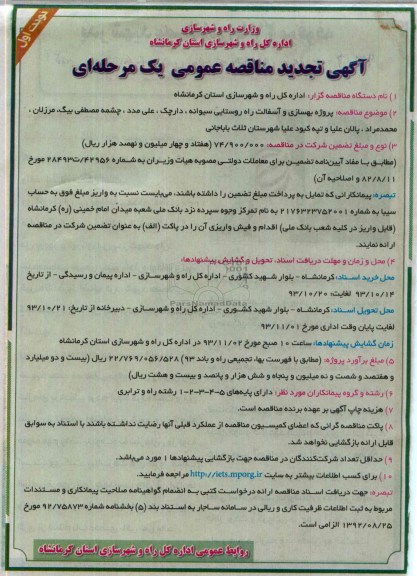 نوبت اول
وزارت راه و شهرسازی
اداره کل راه و شهرسازی استان کرمانشاه
آگهی تجدید مناقصه عمومی یک مرحله‌ای
۱) نام دستگاه مناقصه گزار: اداره کل راه و شهرسازی استان کرمانشاه
۲) موضوع مناقصه: پروژه بهسازی و آسفالت راه روستایی سیوانه ، دارچک ، علی مدد ، چشمه مصطفی بیگ، مرزلان ،
محمدمراد ، پالان علیا و تپه کبود علیا شهرستان ثلاث باباجانی
۳) نوع و مبلغ تضمین شرکت در مناقصه: ۷۴/۹۰۰/۰۰۰ (هفتاد و چهار میلیون و نهصد هزار ریال)
(مطابق با مفاد آیین‌نامه تضمین برای معاملات دولتی مصوبه هیات وزیران به شماره ۴۲۹۵۶/ت۲۸۴۹۳ مورخ
۸۲/۸/۱۱ و اصلاحیه آن)
تبصره: پیمانکارانی که تمایل به پرداخت مبلغ تضمین را داشته باشند، می‌بایست نسبت به واریز مبلغ فوق به حساب
سیبا به شماره ۲۱۷۶۴۴۳۷۵۲۰۰۱ به نام تمرکز وجوه سپرده نزد بانک ملی شعبه میدان امام خمینی (ره) کرمانشاه
(قابل واریز در کلیه شعب بانک ملی) اقدام و فیش واریزی آن را در پاکت (الف) به عنوان تضمین شرکت در مناقصه
ارائه نمایند.
۴) محل و زمان و مهلت دریافت اسناد، تحویل و گشایش پیشنهادها:
محل خرید اسناد: کرمانشاه - بلوار شهید کشوری - اداره کل راه و شهرسازی - اداره پیمان و رسیدگی - از تاریخ
۹۳/۱۰/۱۴ لغایت: ۹۳/۱۰/۲۰
محل تحویل اسناد: کرمانشاه - بلوار شهید کشوری - اداره کل راه و شهرسازی - دبیرخانه از تاریخ: ۹۳/۱۰/۲۱
لغایت پایان وقت اداری مورخ ۹۳/۱۱/۰۱
زمان گشایش پیشنهادها: ساعت ۱۰ صبح مورخ ۹۳/۱۱/۰۲ در اداره کل راه و شهرسازی استان کرمانشاه
۵) مبلغ برآورد پروژه: (مطابق با فهرست بها، تجمیعی راه و باند ۹۳) ۲۲/۷۶۹/۰۵۶/۵۲۸ ریال (بیست و دو میلیارد
و هفتصد و شصت و نه میلیون و پنجاه و شش هزار و پانصد و بیست و هشت ریال)
۶) رشته و گروه پیمانکاران مورد نظر: دارای پایه‌های ۵-۴-۳-۲-۱ رشته راه و ترابری
۷) هزینه چاپ آگهی بر عهده برنده مناقصه است.
۸) پاکت مناقصه گرانی که اعضای کمیسیون مناقصه از عملکرد قبلی آنها رضایت نداشته باشند با استناد به سوابق
قابل ارائه بازگشایی نخواهد شد.
۹) حداقل تعداد شرکت‌کنندگان در مناقصه جهت بازگشایی پیشنهادها ۱ مورد می‌باشد.
۱۰) برای کسب اطلاعات بیشتر به سایت http://iets.mporg.ir مراجعه فرمایید.
تبصره: جهت دریافت اسناد مناقصه ارائه درخواست کتبی به انضمام گواهینامه صلاحیت پیمانکاری و مستندات
مربوط به ثبت اطلاعات ظرفیت کاری و ریالی در سامانه ساجار به استناد بند (۵) بخشنامه شماره ۹۲/۷۵۸۷۳ مورخ
۱۳۹۲/۰۸/۲۵ الزامی است.
روابط عمومی اداره کل راه و شهرسازی استان کرمانشاه